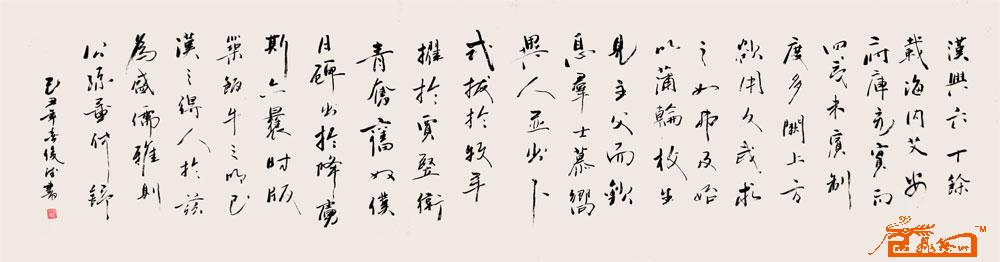 漢興六十餘
載海内艾安
府庫充實而
四夷未賓制
度多闕上方
欲用文武求
之如弗及始
以蒲輪枚生
見主父而歎
息羣士慕嚮
異人並出卜
式拔於牧羊
擢於賈竪衛
青奮舊奴僕
日磾出於降虜
斯亦曩時版
築飯牛之明已
漢之得人於茲
為盛儒雅則
公孫董仲舒
己丑年李俊書
TM